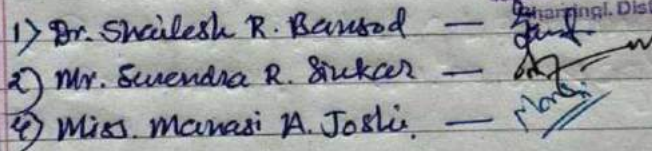 1) Dr. Shailesh R. Bansod —
2) Mr. Surendra R. Sirkar —
4) Miss. Manasi A. Joshi. —